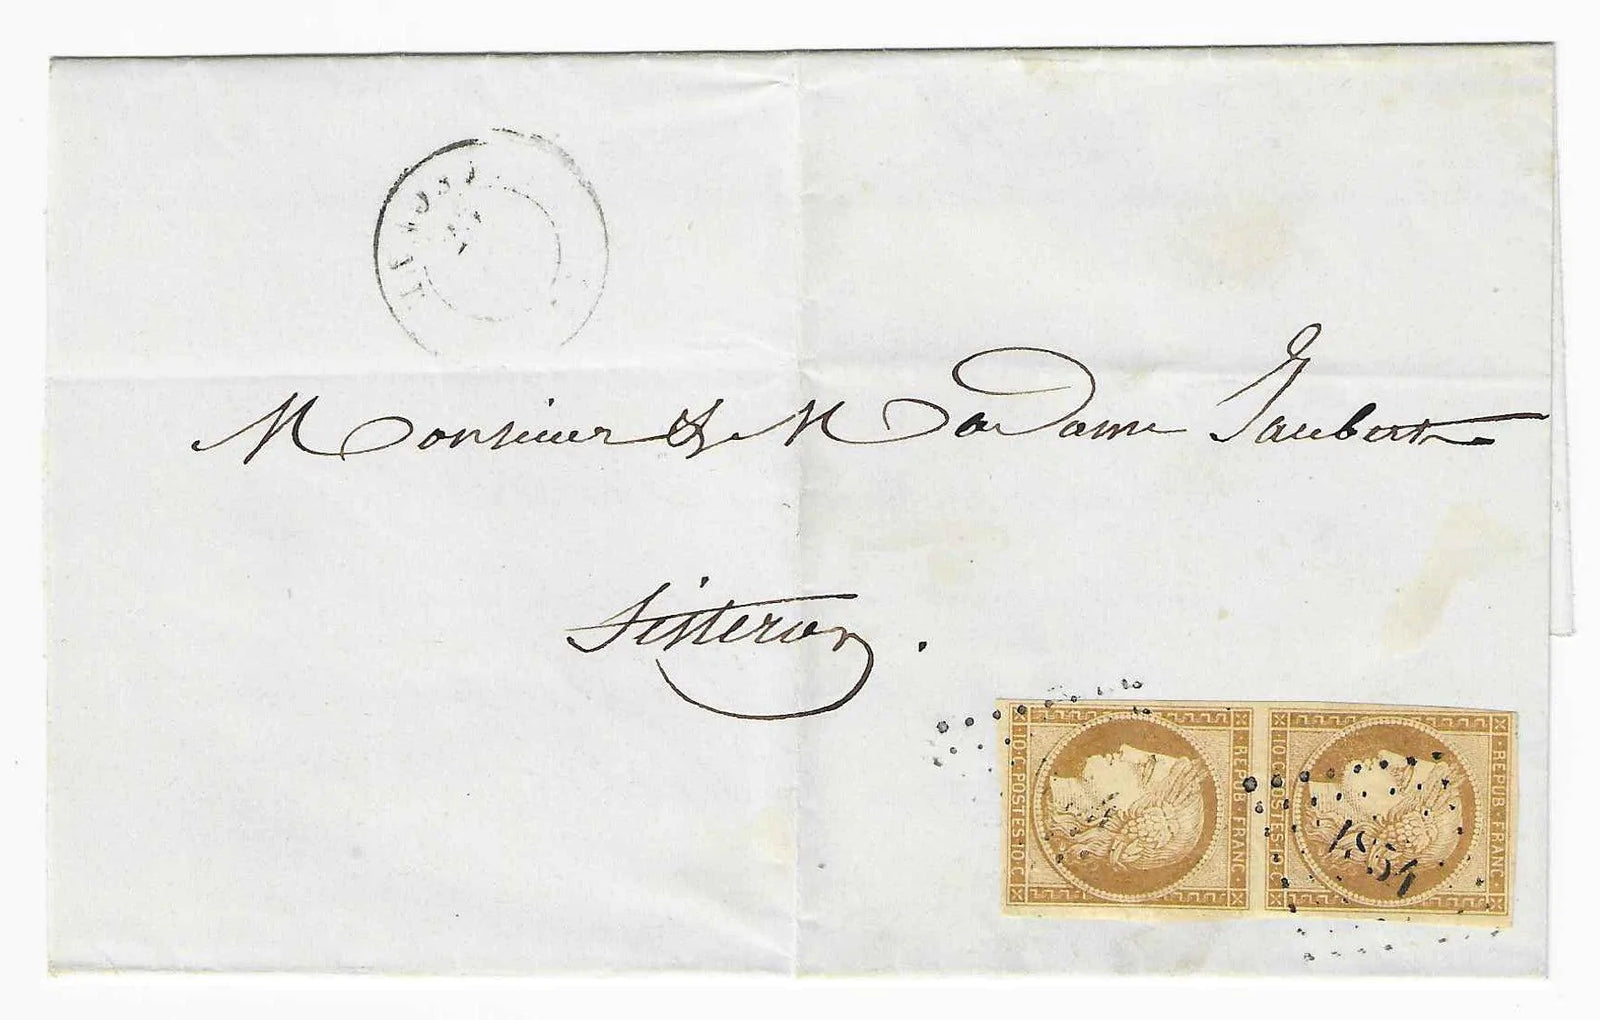 Monsieur & Madame Jaubert
Sisteron.
REPUB FRANC
10 C POSTES 10 C
REPUB FRANC
10 C POSTES 10 C
1854